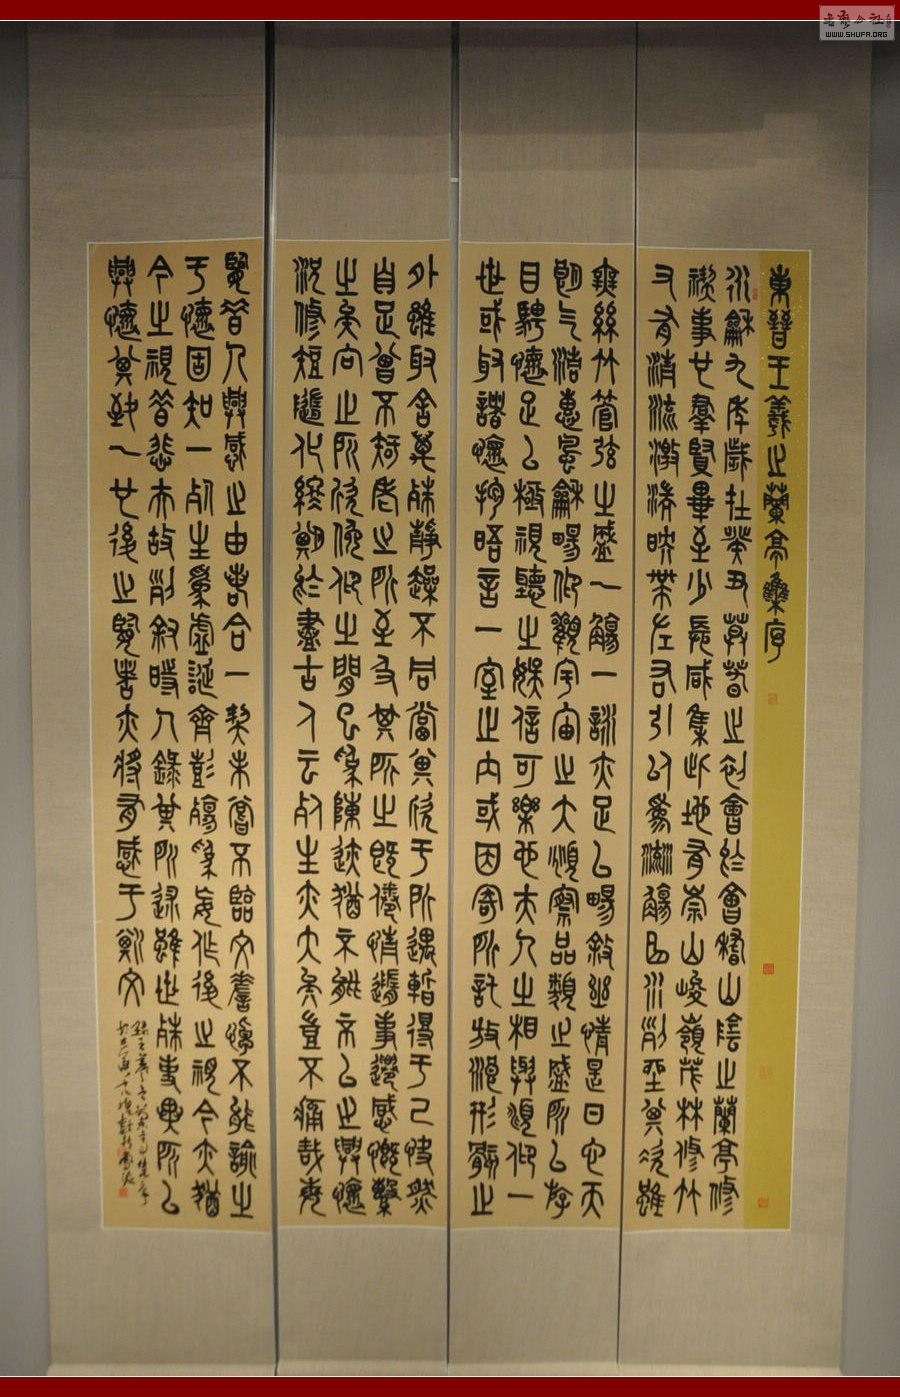 東晉王羲之蘭亭集序
永龢九年歲在癸丑莫春之初會於會稽山陰之蘭亭修
禊事也群賢畢至少長咸集此地有崇山峻嶺茂林修竹
又有清流激湍映帶左右引以為流觴曲水列坐其次雖
無絲竹管弦之盛一觴一詠亦足以暢敘幽情是日也天
朗气清惠風龢暢仰觀宇宙之大俯察品類之盛所以游
目騁懷足以極視聽之娛信可樂也夫人之相與俯仰一
世或取諸懷抱晤言一室之內或因寄所託放浪形骸之
外雖取舍萬殊靜躁不同當其欣于所遇暫得于己快然
自足曾不知老之所至及其所之既倦情隨事遷感慨繫
之矣向之所欣俛仰之閒以為陳跡猶不能不以之興懷
況修短隨化終期於盡古人云死生亦大矣豈不痛哉每
覽昔人興感之由若合一契未嘗不臨文嗟悼不能喻之
于懷固知一死生為虛誕齊彭殤為妄作後之視今亦猶
今之視昔悲夫故列敘時人錄其所述雖世殊事異所以
興懷其致一也後之覽者亦將有感于斯文
WWW.SHUFA.ORG